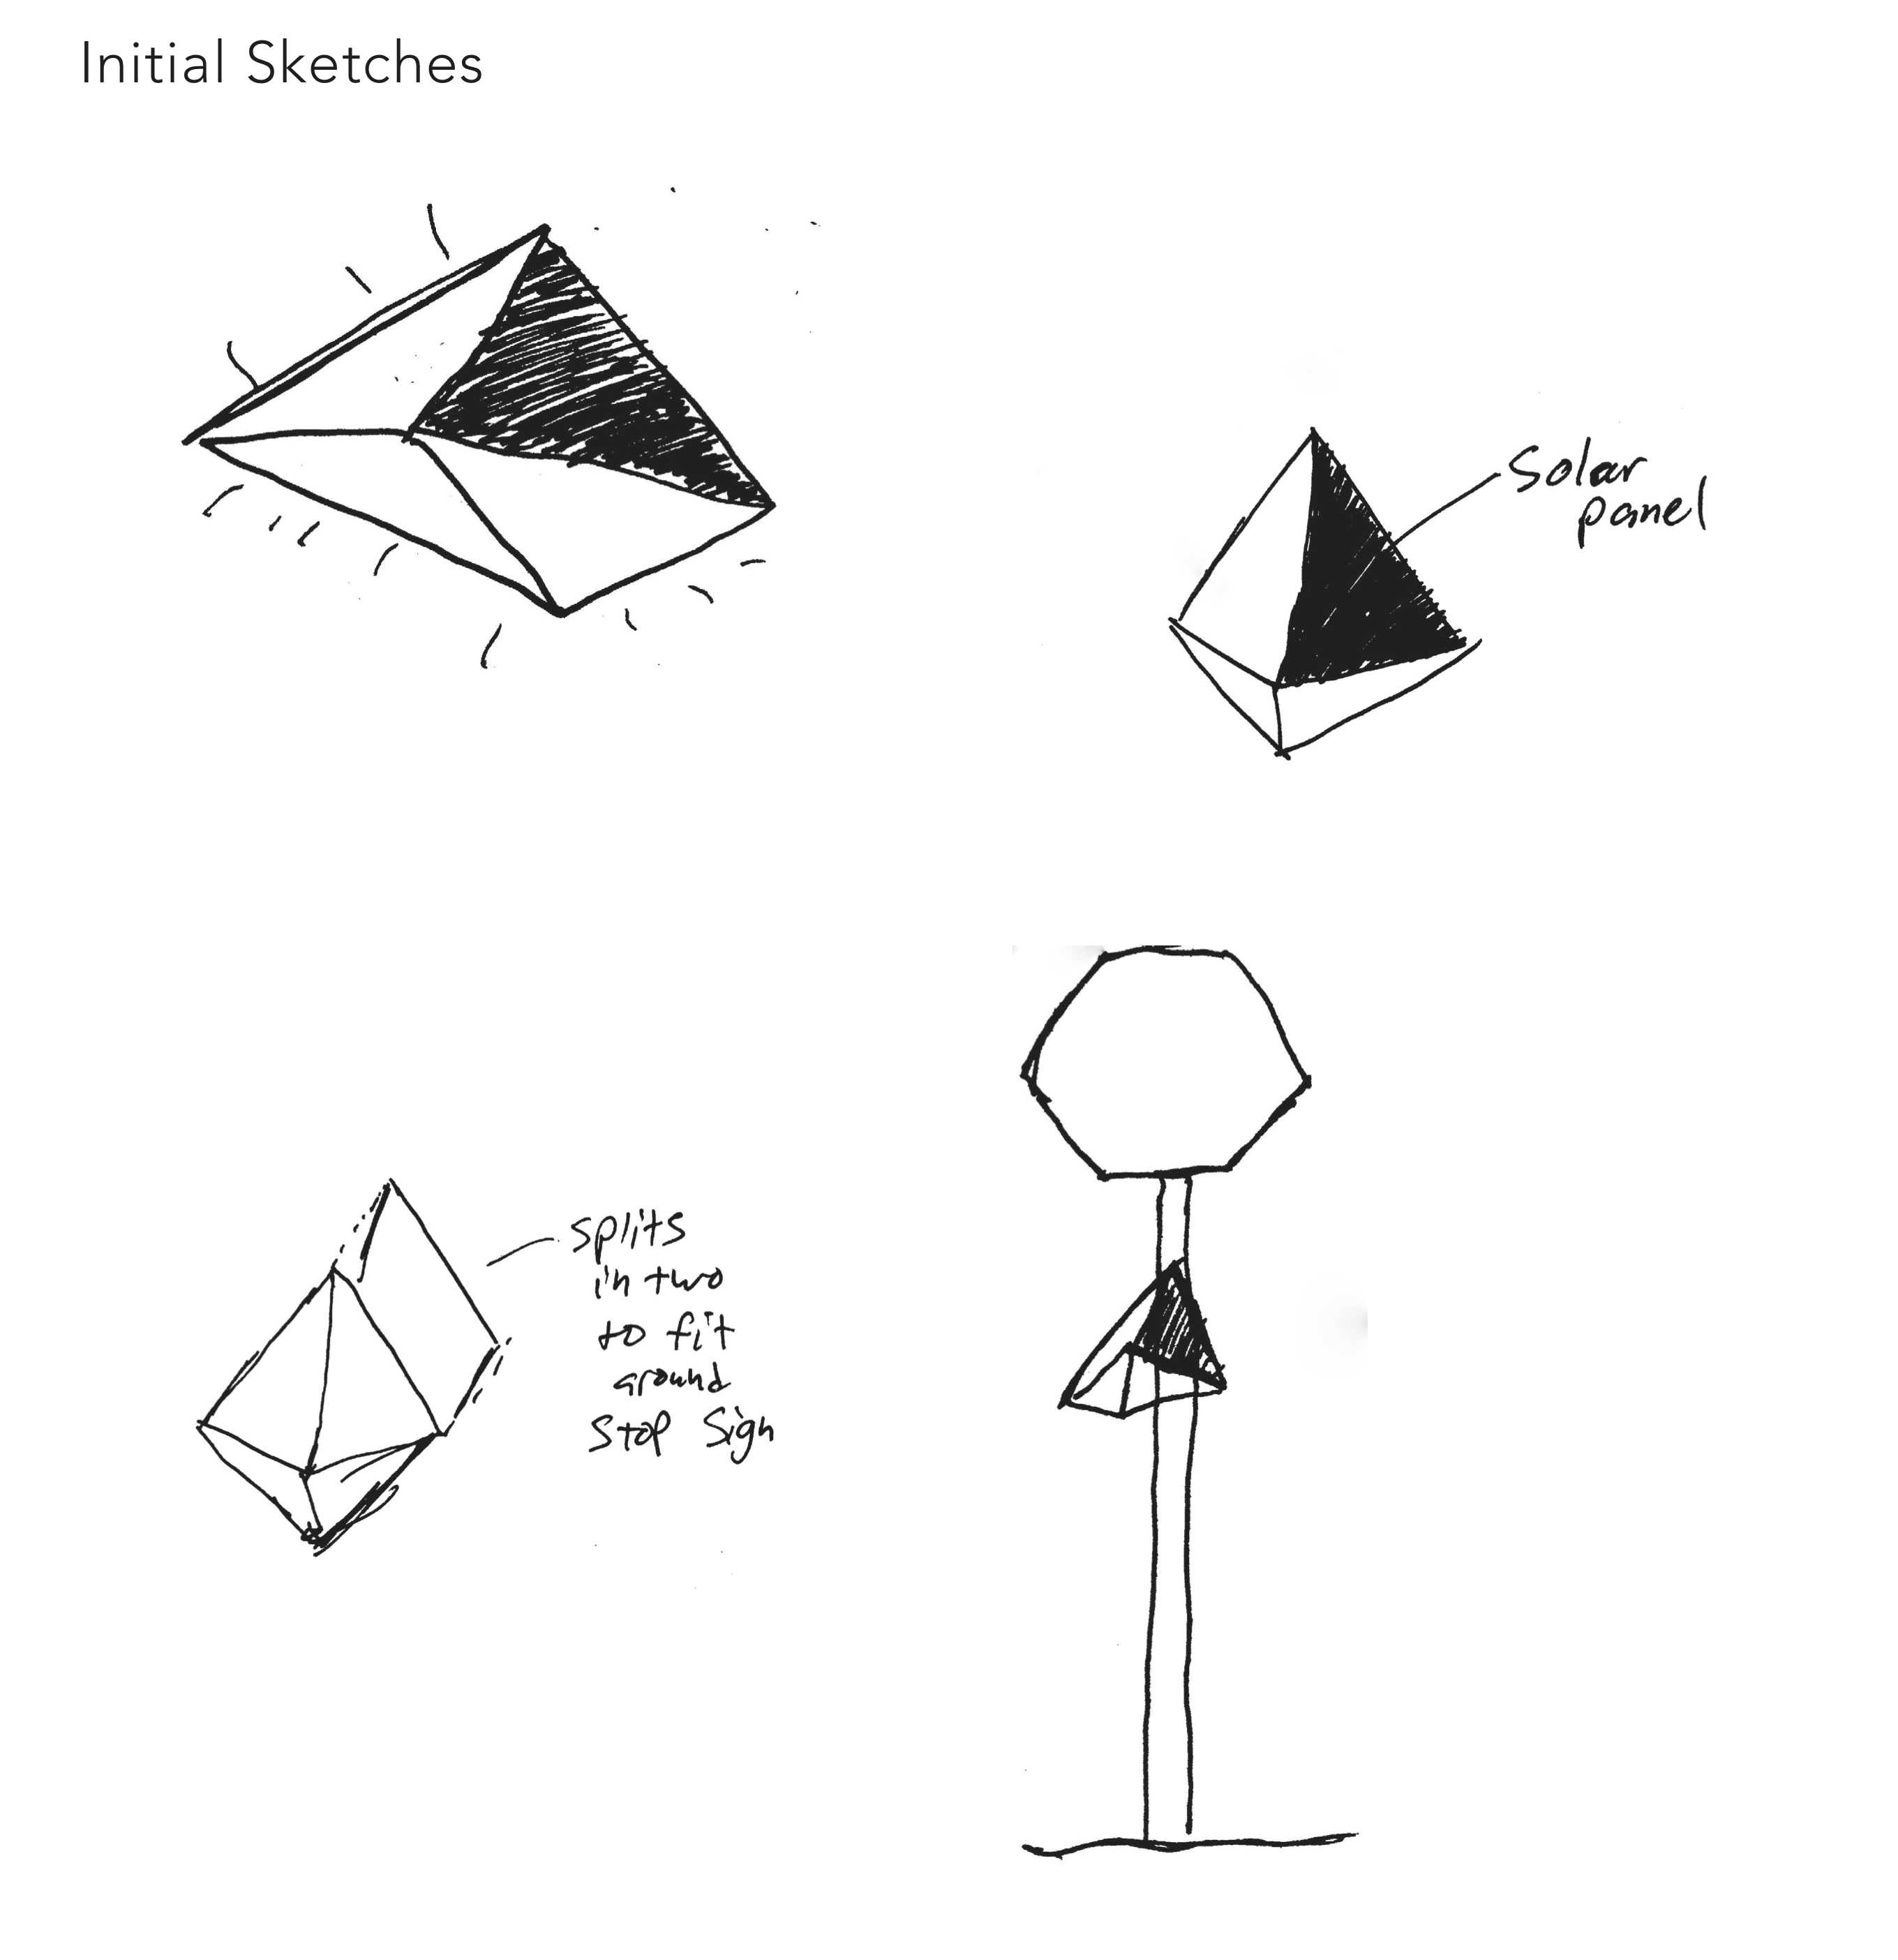 Initial Sketches
solar
panel
splits
in two
to fit
around
stop sign